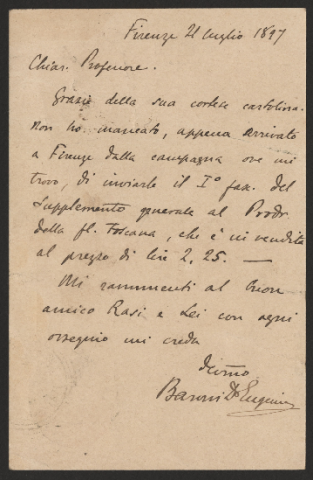 Firenze 21 luglio 1897
Chiar. Professore.
Grazie della sua cortese cartolina.
Non ho mancato, appena arrivato
a Firenze dalla campagna ove mi
trovo, di inviarle il I° fas. del
Supplemento generale al Prodr.
della fl. Toscana, che è in vendita
al prezzo di lire 2,25. —
Mi rammenti al buon
amico Rasi e a Lei con ogni
ossequio mi creda
devmo
Baroni Dr Eugenio